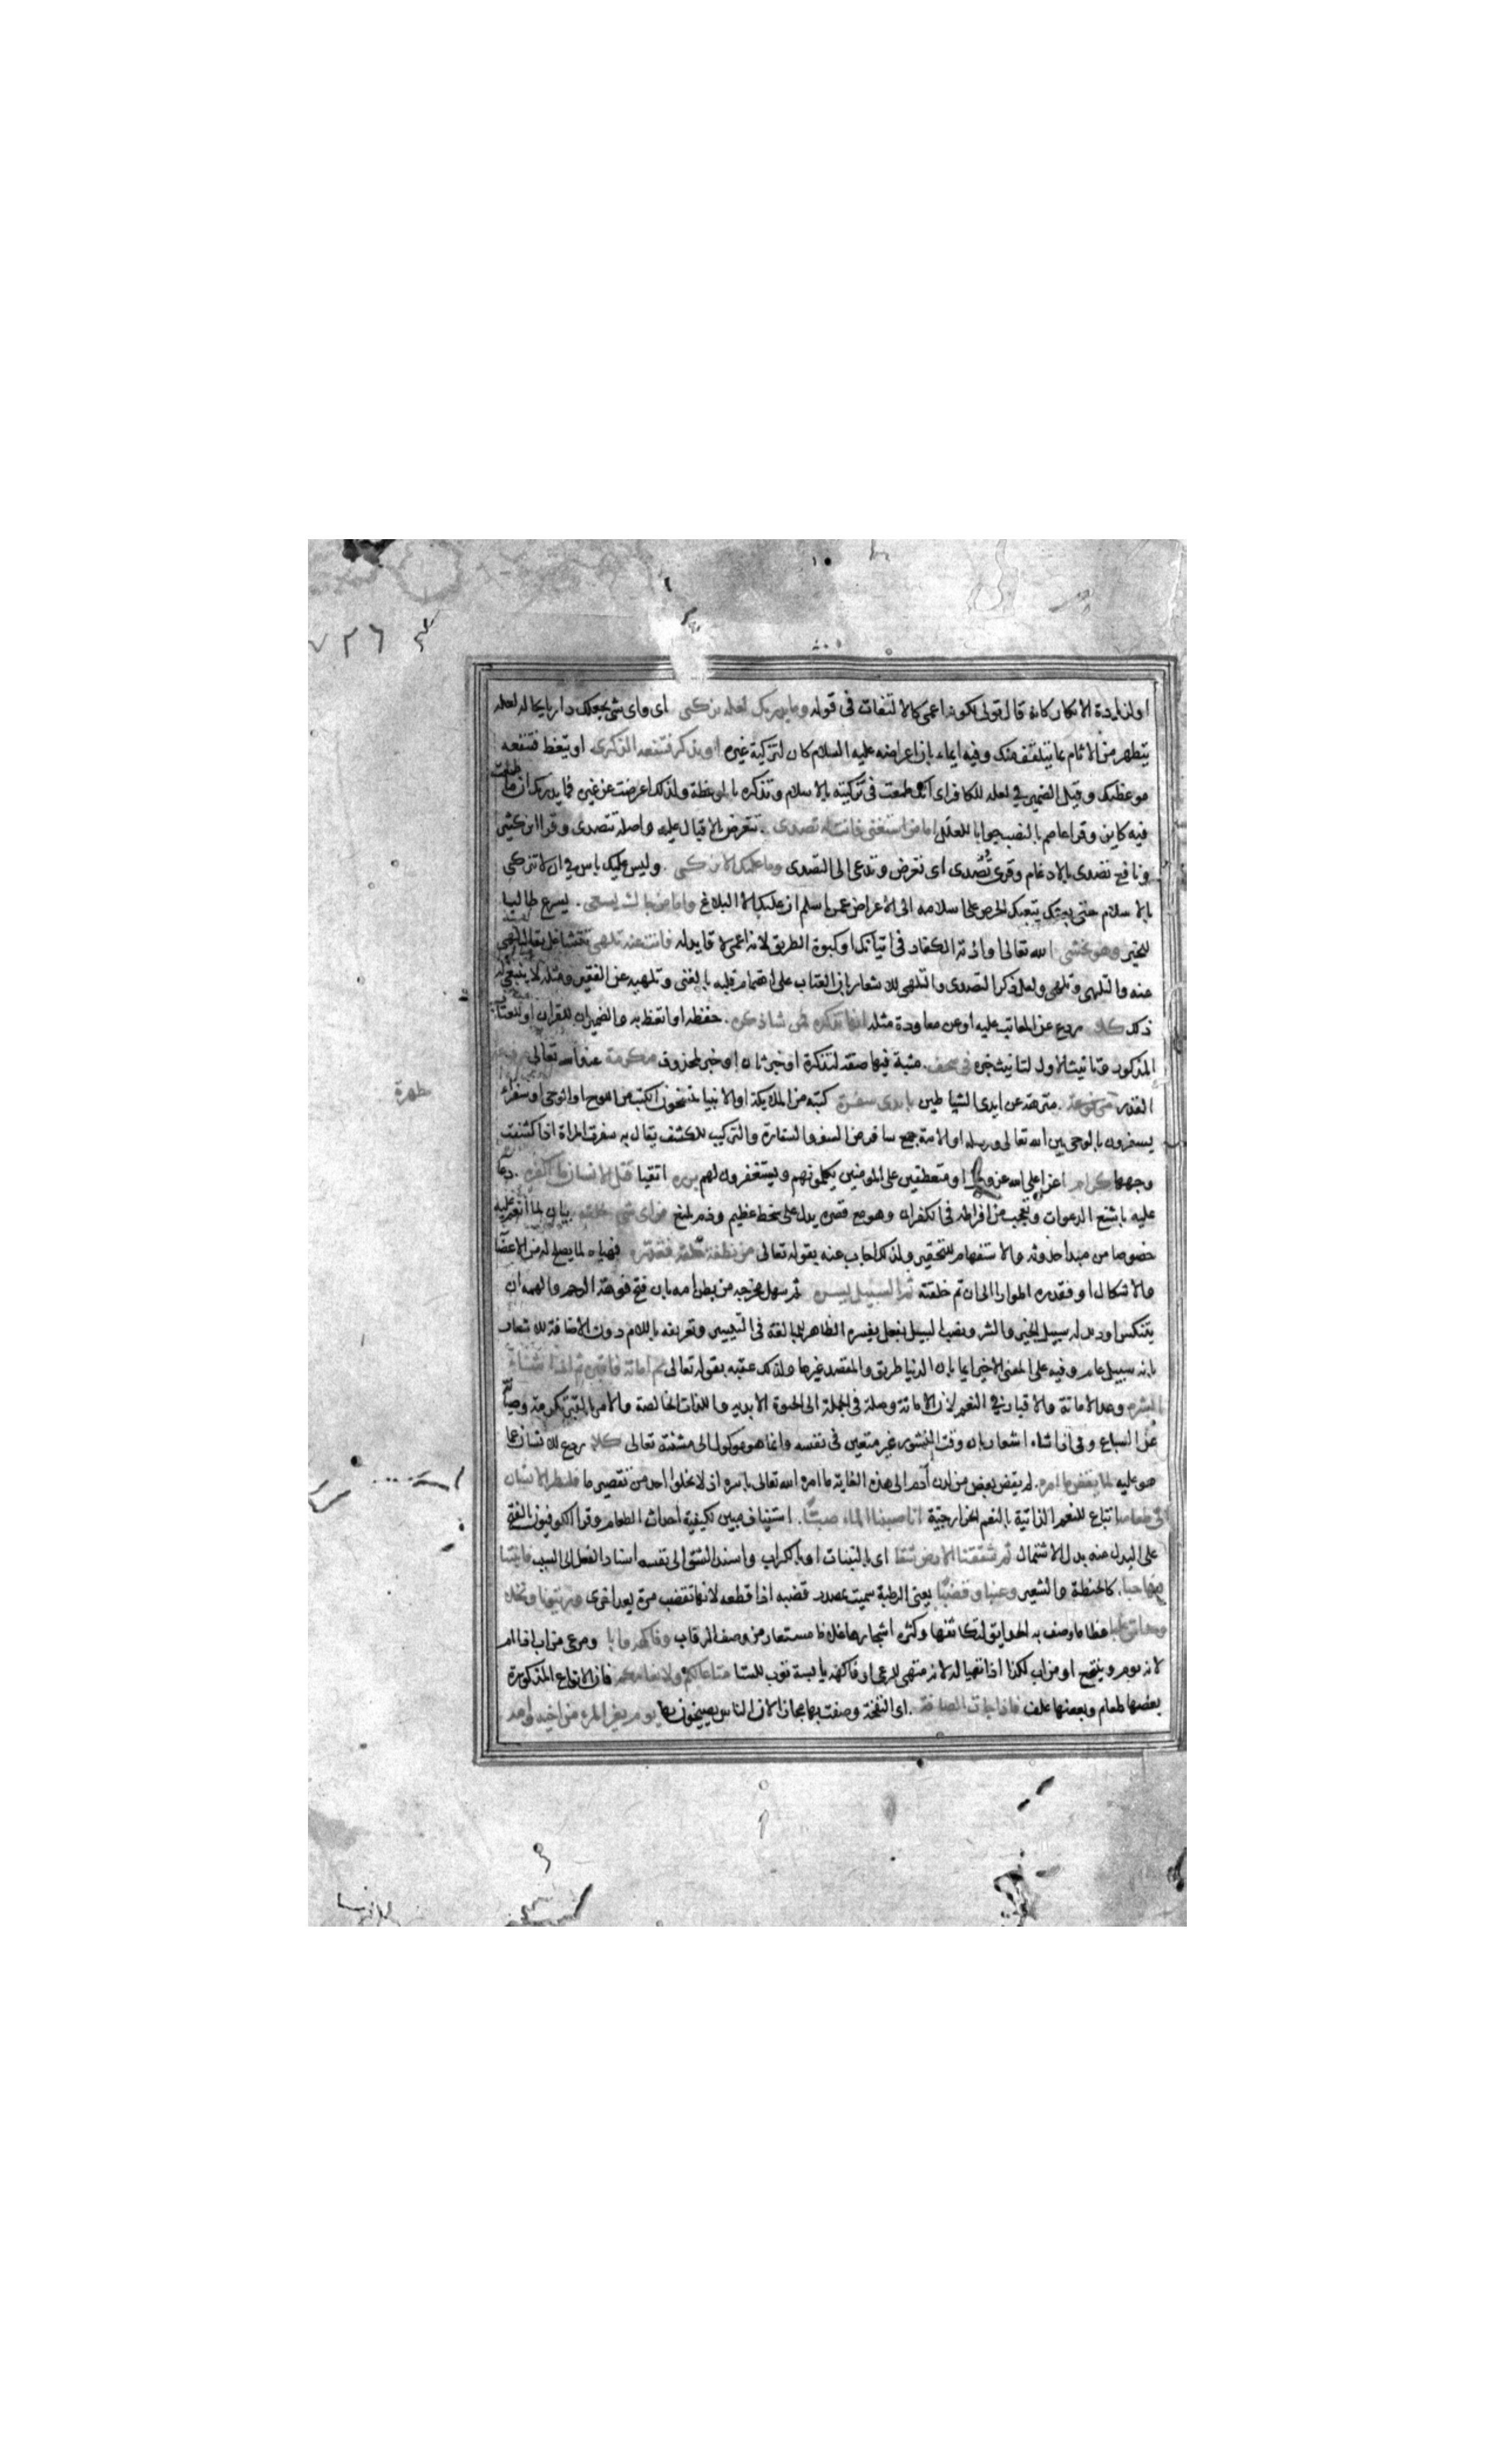 ٧٢٦
او لزيادة الانكار كانه قال تولى لكونه اعمى كالالتفات فى قوله وما يدريك لعله يزكى اى واى شئ يجعلك داريا بحاله لعله
يتطهر من الاثام بما يتلقف منك وفيه ايماء بان اعراضه عليه السلام كان لتزكية غيره او يذكر فتنفعه الذكرى او يتعظ فتنفعه
موعظتك وقيل الضمير فى لعله للكافر اى انك طمعت فى تزكيته بالاسلام وتذكره بالموعظة ولذلك اعرضت عن غيره فما يدريك ان ما طمعت
فيه كاين وقرا عاصم بالنصب جوابا للعل اما من استغنى فانت له تصدى . تتعرض بالاقبال عليه واصله تتصدى وقرا ابن كثير
ونافع تصدى بالادغام وقرى تُصدى اى تعرض وتدعى الى التصدى وما عليك الا يزكى . وليس عليك باس فى ان لا تتزكى
بالاسلام حتى يبعثك الحرص على اسلامه الى الاعراض عمن اسلم ان عليك الا البلاغ واما من جاءك يسعى . يسرع طالبا
للخير وهو يخشى الله تعالى واذية الكفار فى اتيانك او كبوة الطريق لانه اعمى لا قايد له فانت عنه تلهى تتشاغل يقال لهى
عنه والتلهى وتلهى ولعل ذكر التصدى والتلهى للاشعار بان العتاب على اهتمام قلبه بالغنى وتلهيه عن الفقير ومثله لا ينبغى له
ذلك كلا ردع عن المعاتب عليه او عن معاودة مثله انها تذكرة فمن شاء ذكره . حفظه او اتعظ به والضميران للقران او العتاب
المذكور وتانيث الاول لتانيث خبره فى صحف . مثبتة فيها صفة لتذكرة او خبر ثان او خبر لمحذوف مكرمة عند الله تعالى مرفوعة
القدر . منزهة عن ايدى الشياطين بايدى سفرة كتبة من الملايكة او الانبيا ينتسخون الكتب من اللوح او الوحى او سفراء
يسفرون بالوحى بين الله تعالى ورسله او الامة جمع سافر من السفر او السفارة والتركيب للكشف يقال سفرت المراة اذا كشفت
وجهها كرام اعزاء على الله عز وجل او متعطفين على المومنين يكلمونهم ويستغفرون لهم بررة اتقيا قتل الانسان ما اكفره . دعا
عليه باشنع الدعوات وتعجب من افراطه فى الكفران وهو مع قصره يدل على سخط عظيم وذم بليغ من اى شئ خلقه بيان لما انعم عليه
خصوصا من مبدا حدوثه والاستفهام للتحقير ولذلك اجاب عنه بقوله تعالى من نطفة خلقه فقدره فهياه لما يصلح له من الاعضا
والاشكال او فقدره اطوارا الى ان تم خلقته ثم السبيل يسره ثم سهل مخرجه من بطن امه بان فتح فوهة الرحم والهمه ان
يتنكس او ذلل له سبيل الخير والشر ونصب السبيل بفعل يفسره الظاهر للمبالغة فى التيسير وتعريفه باللام دون الاضافة للاشعار
بانه سبيل عام وفيه على المعنى الاخير ايما بان الدنيا طريق والمقصد غيرها ولذلك عقبه بقوله تعالى ثم اماته فاقبره ثم اذا شاء
انشره وعد الاماتة والاقبار فى النعم لان الاماتة وصلة فى الجملة الى الحيوة الابدية واللذات الخالصة والامر بالقبر تكرمة وصيانة
عن السباع وفى اذا شاء اشعار بان وقت النشور غير متعين فى نفسه وانما هو موكول الى مشئته تعالى كلا ردع للانسان عما
هو عليه لما يقض ما امره . لم يقض بعض من لدن آدم الى هذه الغاية ما امره الله تعالى باسره اذ لا يخلوا احد من تقصير ما فلينظر الانسان
الى طعامه اتباع للنعم الذاتية بالنعم الخارجية انا صببنا الماء صبا . استيناف مبين لكيفية احداث الطعام وقرا الكوفيون بالفتح
على البدل منه بدل الاشتمال ثم شققنا الارض شقا اى بالنبات او بالكراب واسند الشق الى نفسه اسناد الفعل الى السبب فانبتنا
فيها حبا . كالحنطة والشعير وعنبا وقضبا يعنى الرطبة سميت بمصدر قضبه اذا قطعه لانها تقضب مرة بعد اخرى وزيتونا ونخلا
وحدائق غلبا عظاما وصف به الحدايق لتكاثفها وكثرة اشجارها مستعار من وصف الرقاب وفاكهة وابا ومرعى من اب اذا ام
لانه يوم وينتجع او من اب لكذا اذا تهيا له لانه متهئ للرعى او فاكهة يابسة توب للشتا متاعا لكم ولانعامكم فان الانواع المذكورة
بعضها طعام وبعضها علف فاذا جاءت الصاخة . اى النفخة وصفت بها مجازا لان الناس يصيخون لها يوم يفر المرء من اخيه وامه
مطهرة